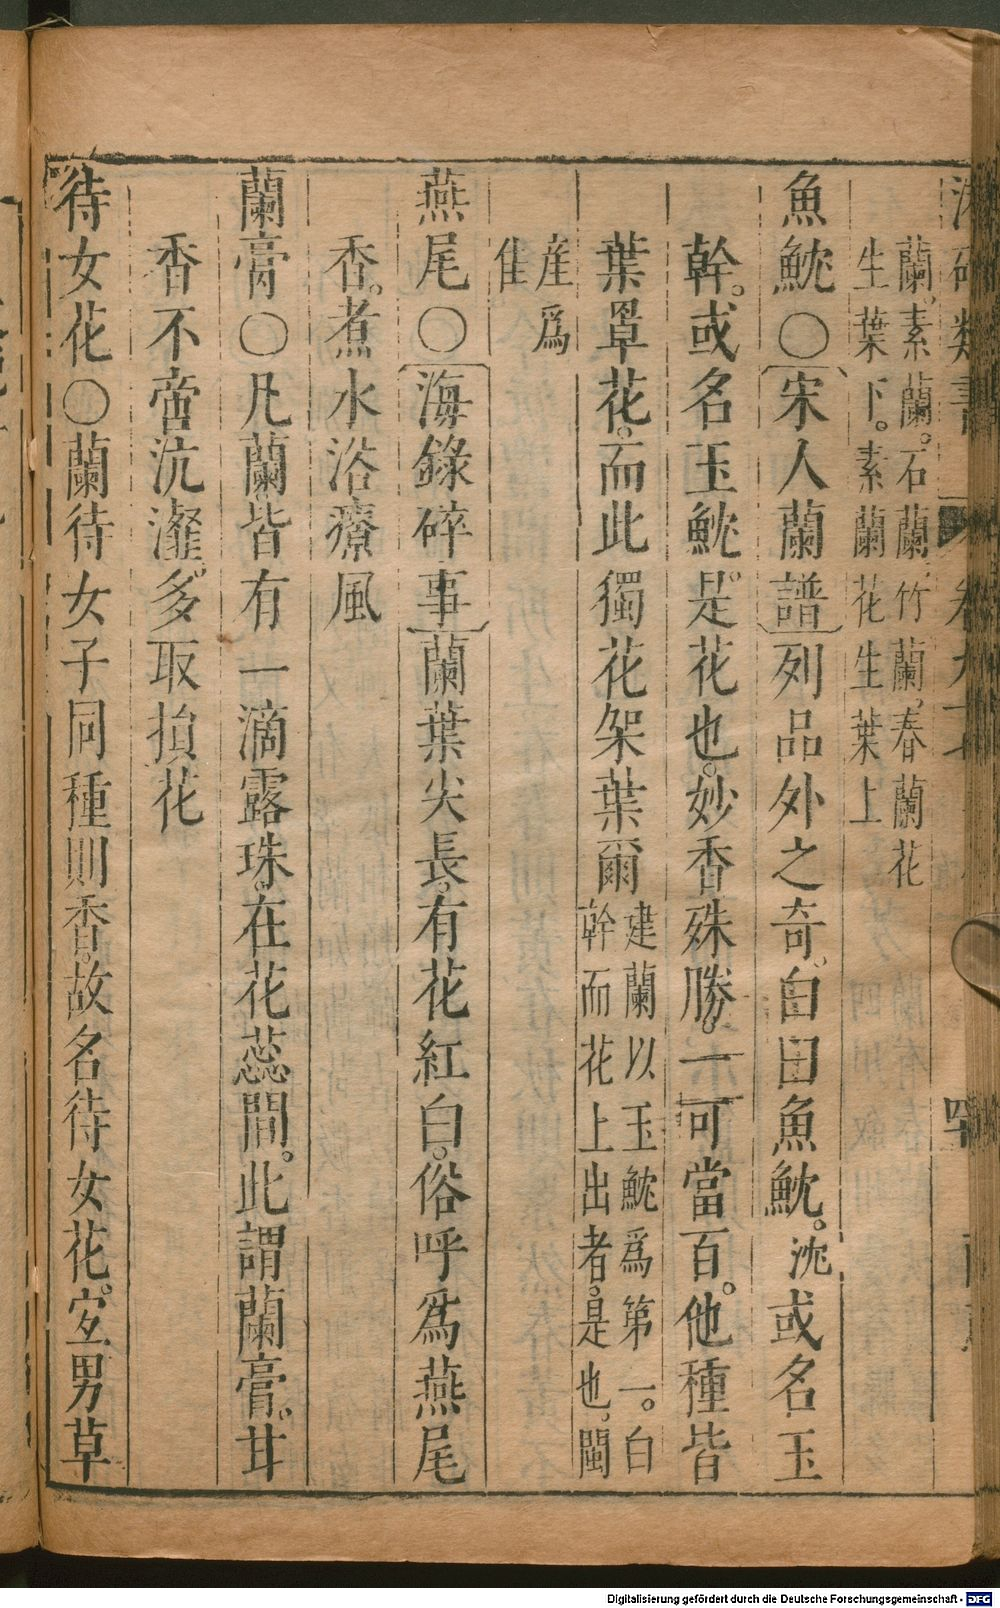 蘭。素蘭。石蘭。竹蘭。春蘭花
生葉下。素蘭花生葉上
魚魫〇宋人蘭譜列品外之奇。白田魚魫。沈或名玉
幹。或名玉魫。是花也。妙香殊勝。一可當百。他種皆
葉罩花。而此獨花架葉爾
建蘭以玉魫爲第一。白
幹而花上出者。是也。閩
産爲
隹
燕尾〇海錄碎事蘭葉尖長。有花紅白。俗呼爲燕尾
香。煮水浴療風
蘭膏〇凡蘭皆有一滴露珠。在花蕊間。此謂蘭膏。甘
香不啻沆瀣。多取損花
待女花〇蘭待女子同種則香。故名待女花。宐男草
Digitalisierung gefördert durch die Deutsche Forschungsgemeinschaft - DFG